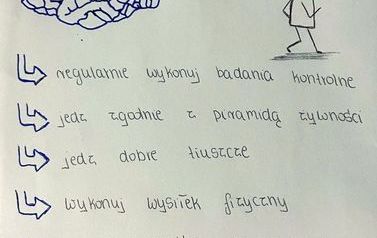 regularnie wykonuj badania kontrolne
jedz zgodnie z piramidą żywności
jedz dobre tłuszcze
wykonuj wysiłek fizyczny